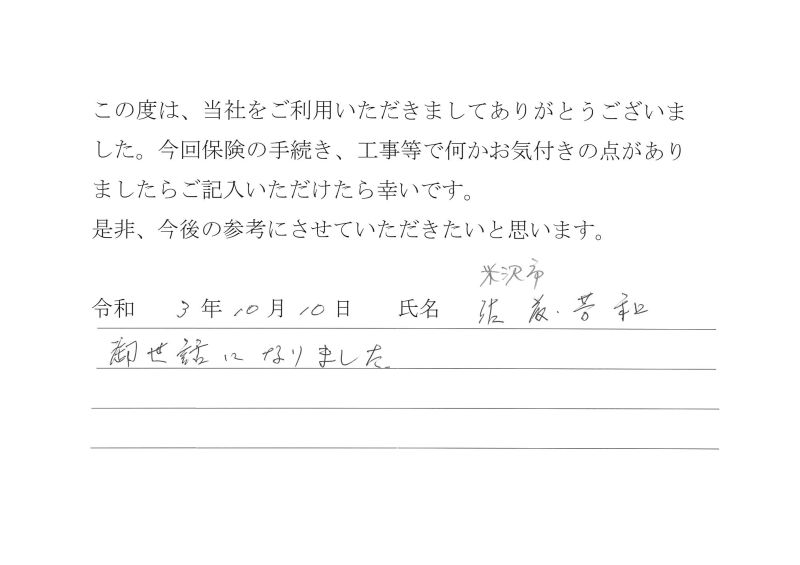 この度は、当社をご利用いただきましてありがとうございま
した。今回保険の手続き、工事等で何かお気付きの点があり
ましたらご記入いただけたら幸いです。
是非、今後の参考にさせていただきたいと思います。
米沢市
令和 3年10月10日 氏名 佐藤 芳和
御世話になりました